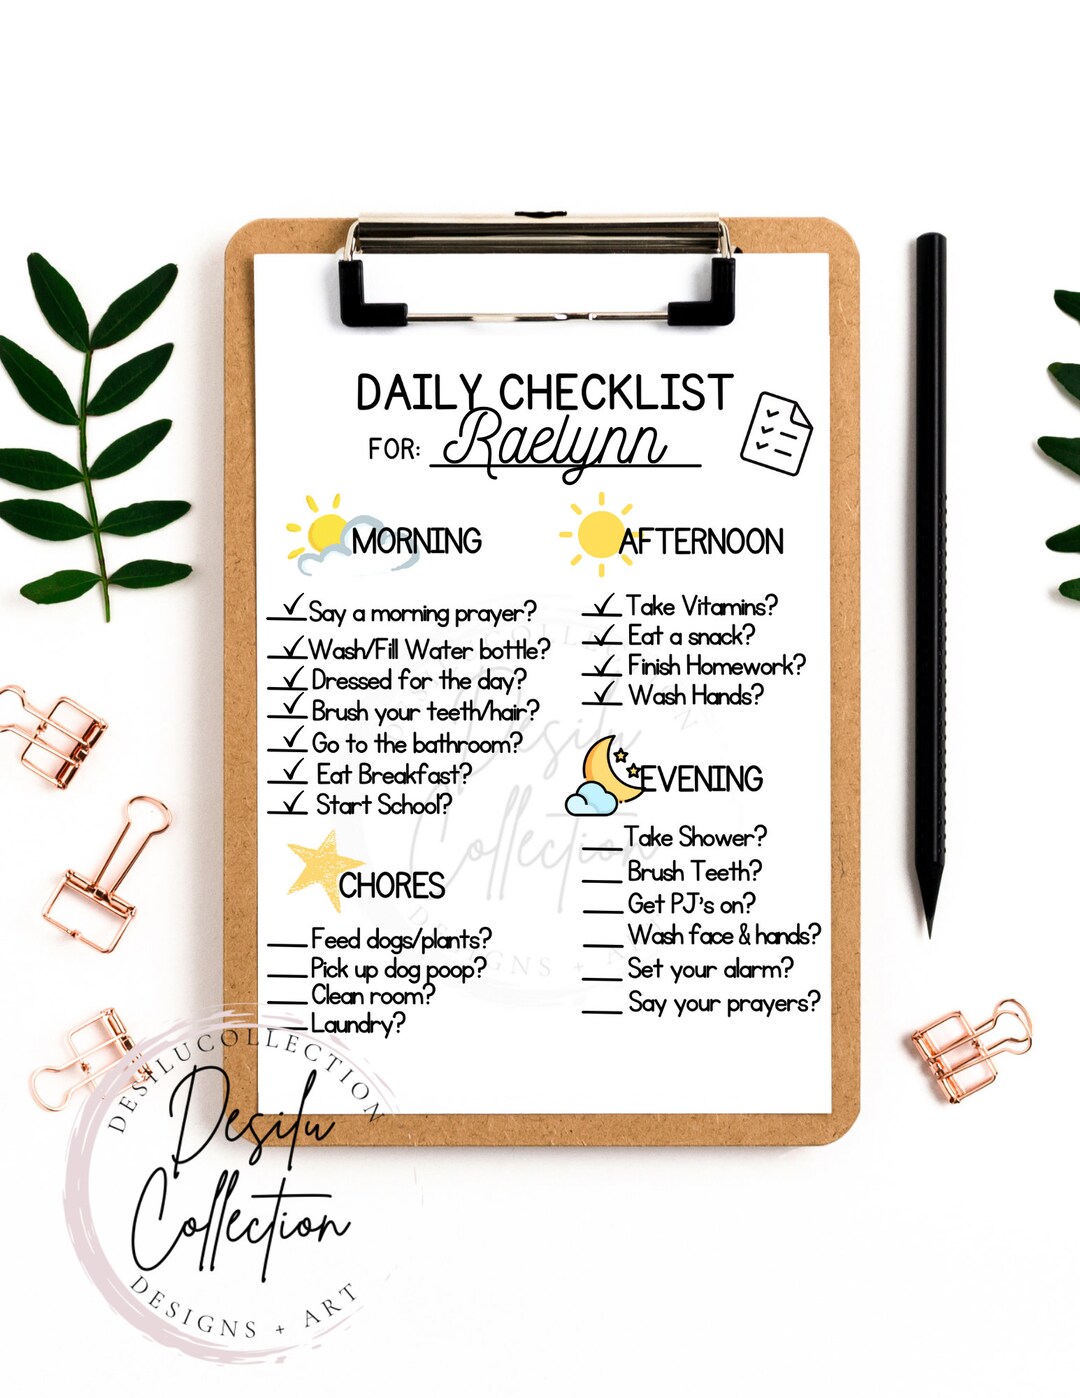 DAILY CHECKLIST
FOR: Raelynn
MORNING
✓ Say a morning prayer?
✓ Wash/Fill Water bottle?
✓ Dressed for the day?
✓ Brush your teeth/hair?
✓ Go to the bathroom?
✓ Eat Breakfast?
✓ Start School?
CHORES
___ Feed dogs/plants?
___ Pick up dog poop?
___ Clean room?
___ Laundry?
AFTERNOON
✓ Take Vitamins?
✓ Eat a snack?
✓ Finish Homework?
✓ Wash Hands?
EVENING
___ Take Shower?
___ Brush Teeth?
___ Get PJ's on?
___ Wash face & hands?
___ Set your alarm?
___ Say your prayers?
DESILUCOLLECTION
Desilu
Collection
DESIGNS + ART
DESILUCOLLECTION
Desilu
Collection
DESIGNS + ART